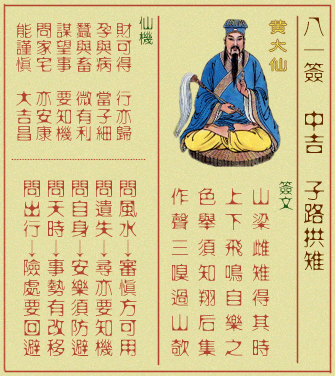 八一簽 中吉 子路拱雉
黃大仙
簽文
山梁雌雉得其時
上下飛鳴自樂之
色舉須知翔后集
作聲三嗅過山欹
仙機
財可得 行亦歸
孕與病 當子細
蠶與畜 微有利
謀望事 要知機
問家宅 亦安康
能謹慎 大吉昌
問風水↓審慎方可用
問遺失↓尋亦要知機
問自身↓安樂須防避
問天時↓事勢有改移
問出行↓險處要回避